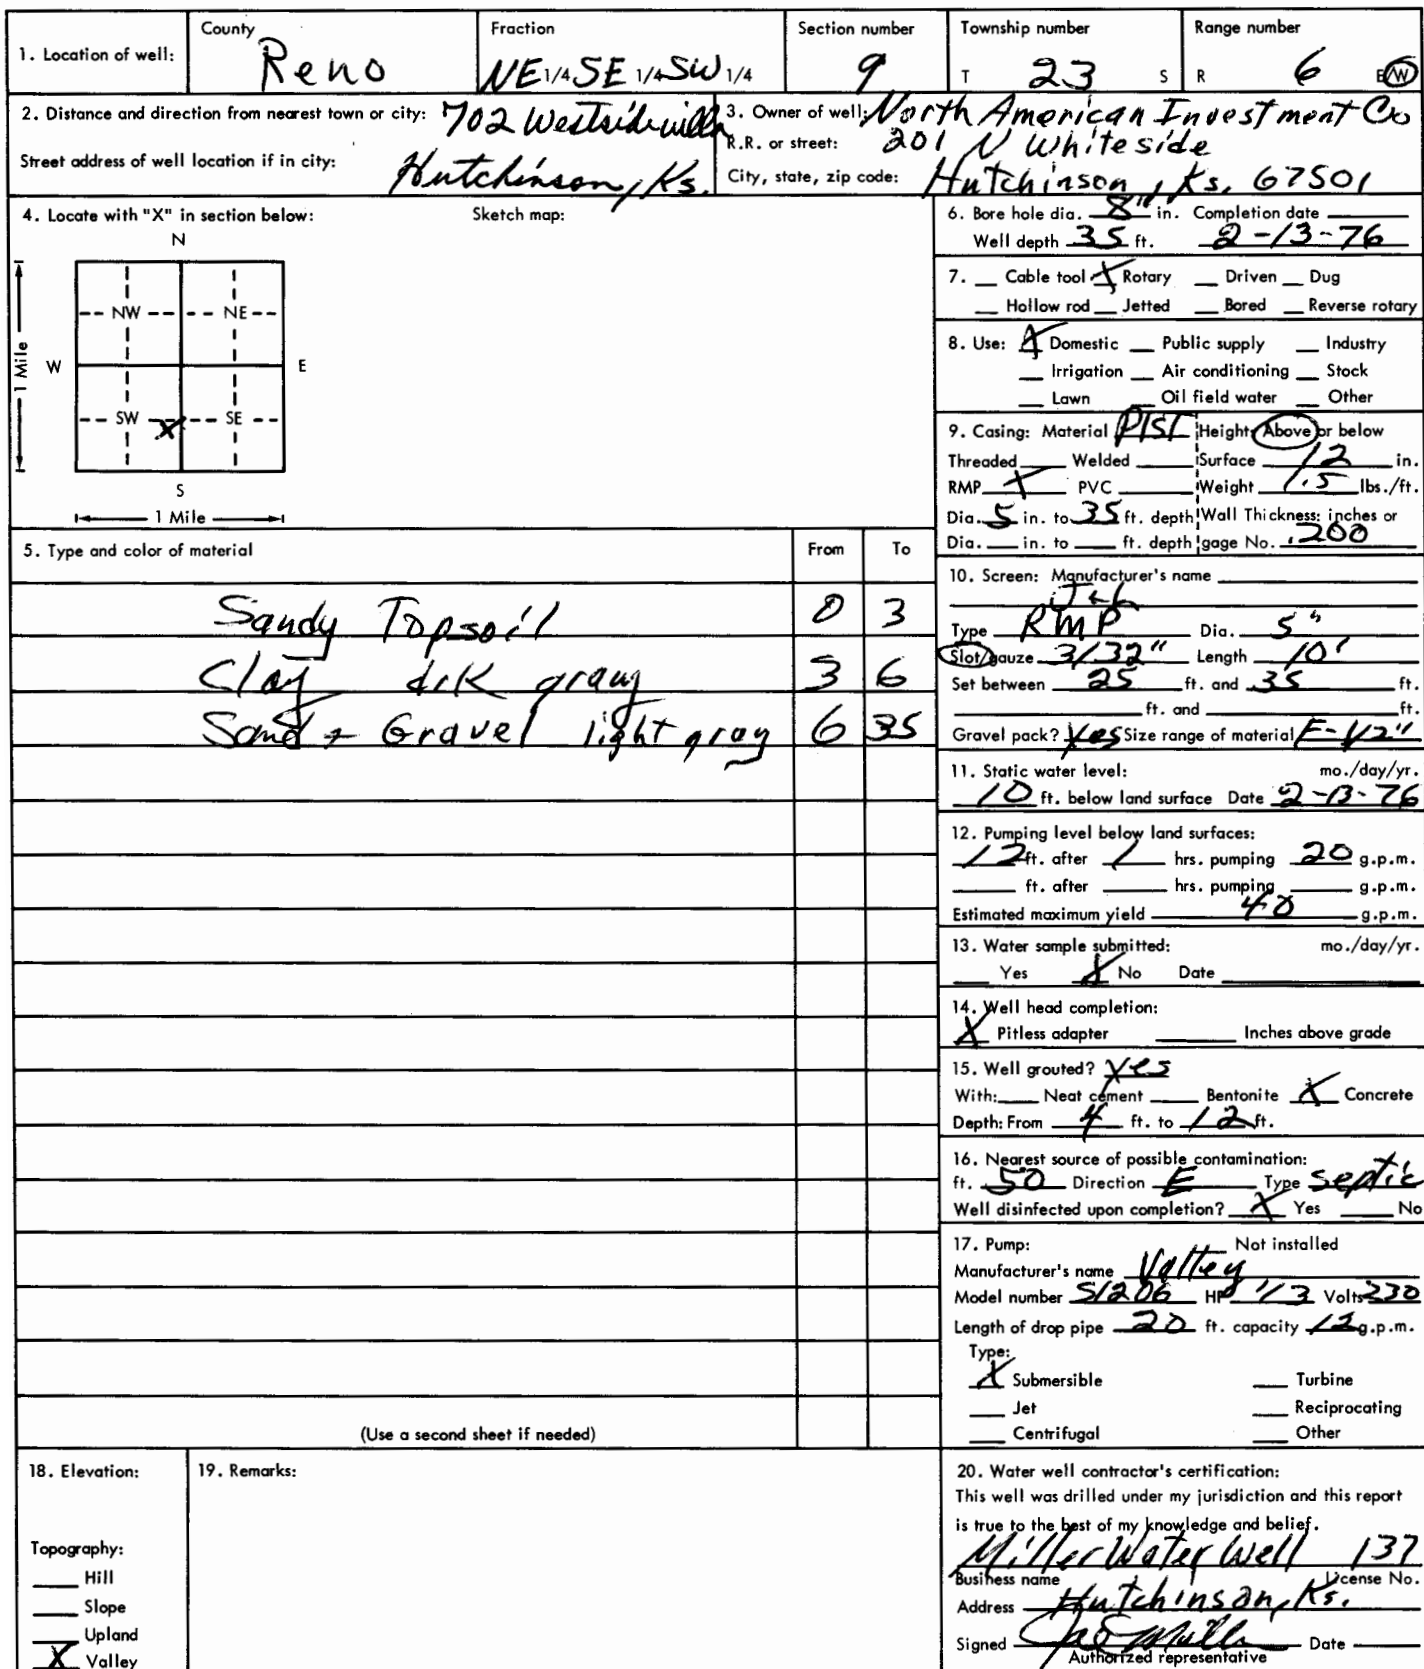 1. Location of well: County Reno Fraction NE 1/4 SE 1/4 SW 1/4 Section number 9 Township number T 23 S Range number R 6 E/W
2. Distance and direction from nearest town or city: 702 Westside
Street address of well location if in city: Hutchinson, Ks.
3. Owner of well: North American Investment Co
R.R. or street: 201 N Whiteside
City, state, zip code: Hutchinson, Ks. 67501
4. Locate with "X" in section below: Sketch map:
N
NW NE
W E
1 Mile
SW X SE
S
1 Mile
5. Type and color of material From To
Sandy Topsoil 0 3
Clay drk gray 3 6
Sand + Gravel light gray 6 35
(Use a second sheet if needed)
6. Bore hole dia. 8" in. Completion date
Well depth 35 ft. 2-13-76
7. __ Cable tool X Rotary __ Driven __ Dug
__ Hollow rod __ Jetted __ Bored __ Reverse rotary
8. Use: X Domestic __ Public supply __ Industry
__ Irrigation __ Air conditioning __ Stock
__ Lawn __ Oil field water __ Other
9. Casing: Material PlST Height: Above or below
Threaded __ Welded __ Surface 12 in.
RMP X PVC __ Weight 1.5 lbs./ft.
Dia. 5 in. to 35 ft. depth Wall Thickness: inches or
Dia. __ in. to __ ft. depth gage No. .200
10. Screen: Manufacturer's name
J+L
Type RMP Dia. 5"
Slot/gauze 3/32" Length 10'
Set between 25 ft. and 35 ft.
__ ft. and __ ft.
Gravel pack? Yes Size range of material F-1/2"
11. Static water level: mo./day/yr.
10 ft. below land surface Date 2-13-76
12. Pumping level below land surfaces:
12 ft. after 1 hrs. pumping 20 g.p.m.
__ ft. after __ hrs. pumping __ g.p.m.
Estimated maximum yield 40 g.p.m.
13. Water sample submitted: mo./day/yr.
__ Yes X No Date
14. Well head completion:
X Pitless adapter __ Inches above grade
15. Well grouted? Yes
With: __ Neat cement __ Bentonite X Concrete
Depth: From 4 ft. to 12 ft.
16. Nearest source of possible contamination:
ft. 50 Direction E Type septic
Well disinfected upon completion? X Yes __ No
17. Pump: __ Not installed
Manufacturer's name Valley
Model number S1206 HP 1/3 Volts 230
Length of drop pipe 20 ft. capacity 12 g.p.m.
Type:
X Submersible __ Turbine
__ Jet __ Reciprocating
__ Centrifugal __ Other
18. Elevation:
Topography:
__ Hill
__ Slope
__ Upland
X Valley
19. Remarks:
20. Water well contractor's certification:
This well was drilled under my jurisdiction and this report
is true to the best of my knowledge and belief.
Miller Water Well 137
Business name License No.
Address Hutchinson, Ks.
Signed Date
Authorized representative